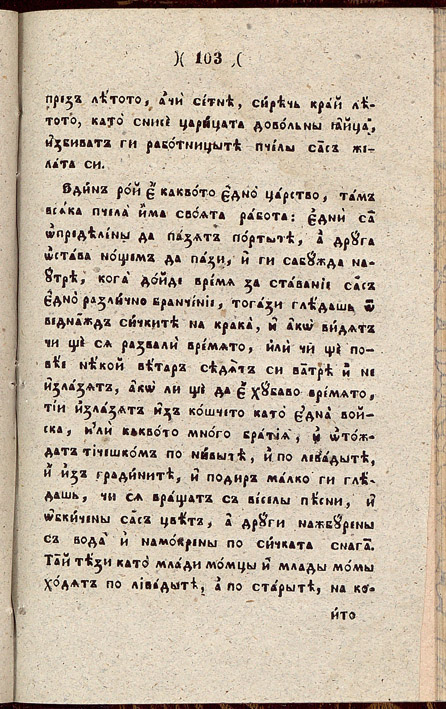 )( 103 )(
презъ лѣ́тото, а҆чѝ се́тнѣ, си́рѣчь кра́й лѣ́-
тото, като̀ снисѐ цари́цата дово́льны ꙗ҆йца̀,
и҆збиватъ ги рабо́тницытѣ пчелы са́съ же-
ла́та си.
Єди́нъ ро́й є҆̀ какво́то є҆дно̀ ца́рство, та́мъ
вся́ка пчела̀ и҆́ма своѧта ра́бота: є҆днѝ са̀
ѡ҆предѣле́ны да па́зѧтъ по́ртытѣ, а҆̀ дрꙋ́га
ѡ҆става но́щемъ да па́зи, и҆̀ ги сабꙋ́жда на-
ꙋ҆трѣ̀, кога̀ до́йде вре́мѧ за ста́ванїе са́съ
є҆дно̀ разли́чно бранче́нїе, тога́зи глѣ́дашь ѿ
ведна́ждъ си́чките на крака̀, и҆̀ а҆кѡ̀ ви́дѧтъ
чи щѐ сѧ развалѝ вре́мѧто, и҆лѝ чѝ щѐ по-
вѣ́е нѣ́кой вѣ́таръ сѣдѧ́тъ си ва́трѣ и҆̀ не
и҆злазѧтъ, а҆кѡ̀ ли щѐ да є҆̀ хꙋ́баво вре́мѧто,
ті́и и҆злазѧтъ и҆зъ ко́шчето като̀ є҆дна̀ вой-
ска, и҆лѝ какво́то мно́го бра́тїѧ, и҆̀ ѡ҆то́ж-
датъ ті́чешкомъ по ни́вытѣ, и҆̀ по лива́дытѣ,
и҆̀ и҆зъ гради́нитѣ, и҆̀ подиръ ма́лко ги глѣ́-
дашь, чи сѧ вра́щатъ съ ве́селы пѣ́сни, и҆̀
ѡ҆бки́чены са́съ цвѣ́тъ, а҆̀ дрꙋ́ги нажбꙋ́рены
съ вода̀ и҆̀ намо́крены по си́чката снага̀.
Та́й тѣ́зи като̀ мла́ди мо́мцы и҆̀ млады мо́мы
хо́дѧтъ по лїва́дытѣ, а҆̀ по ста́рытѣ, на ко-
и҆то